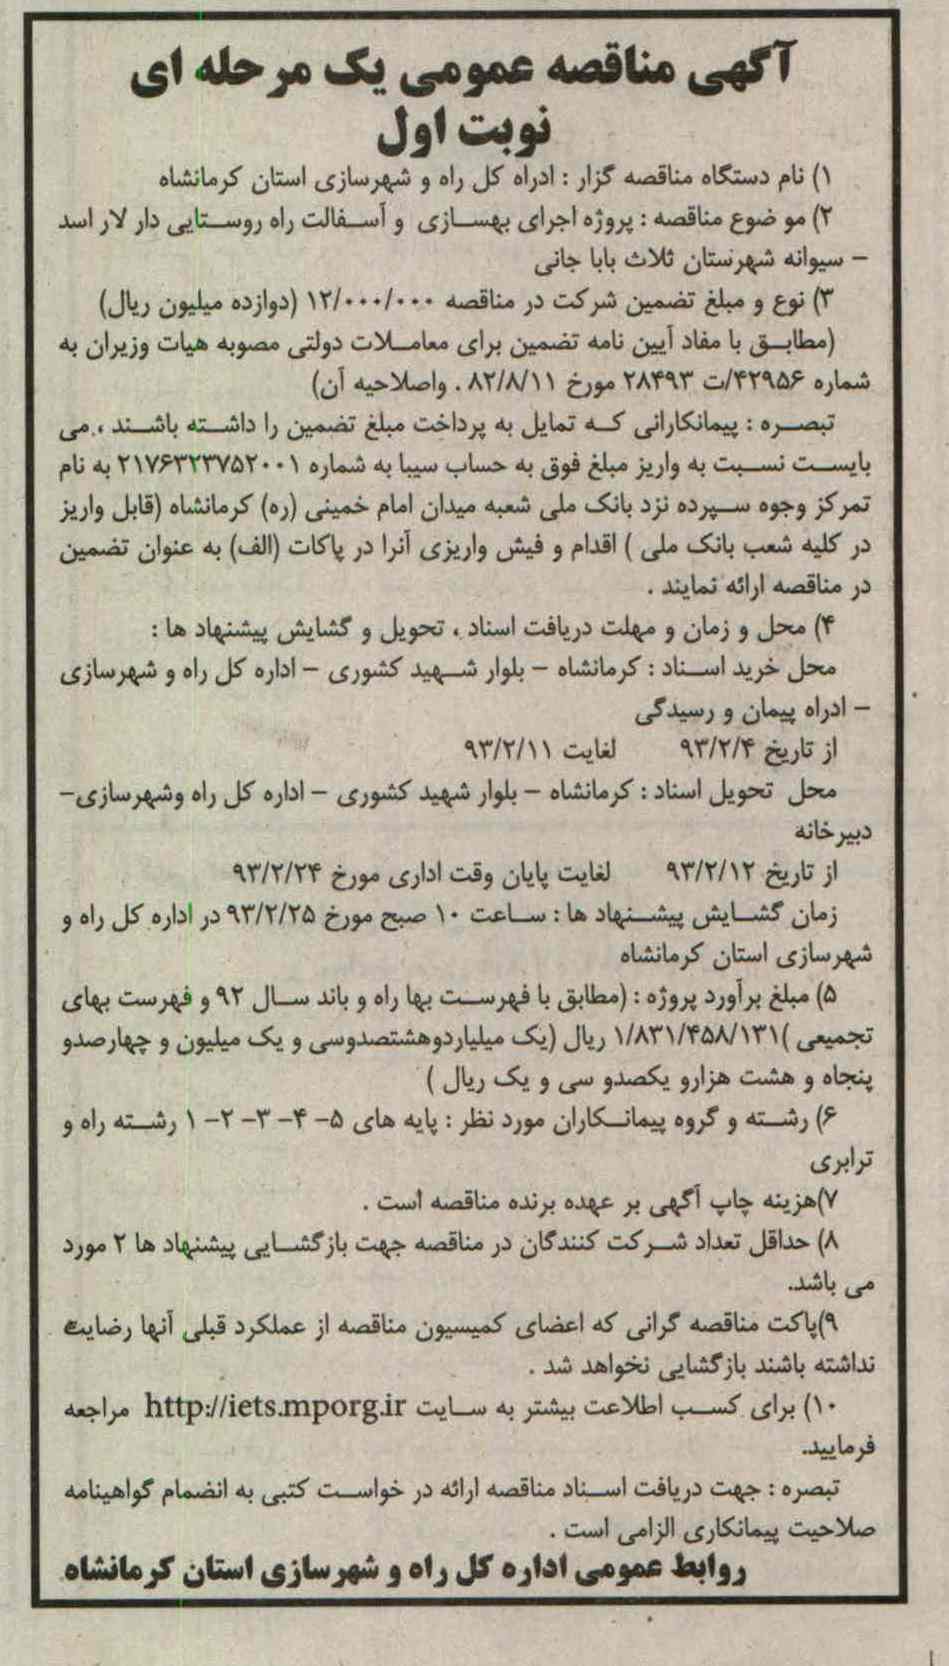 آگهی مناقصه عمومی یک مرحله ای
نوبت اول
۱) نام دستگاه مناقصه گزار : ادراه کل راه و شهرسازی استان کرمانشاه
۲) مو ضوع مناقصه : پروژه اجرای بهسازی و آسفالت راه روستایی دار لار اسد
– سیوانه شهرستان ثلاث بابا جانی
۳) نوع و مبلغ تضمین شرکت در مناقصه ۱۲/۰۰۰/۰۰۰ (دوازده میلیون ریال)
(مطابق با مفاد آیین نامه تضمین برای معاملات دولتی مصوبه هیات وزیران به
شماره ۴۲۹۵۶/ت ۲۸۴۹۳ مورخ ۸۲/۸/۱۱ . واصلاحیه آن)
تبصره : پیمانکارانی که تمایل به پرداخت مبلغ تضمین را داشته باشند ، می
بایست نسبت به واریز مبلغ فوق به حساب سیبا به شماره ۲۱۷۶۳۲۳۷۵۲۰۰۱ به نام
تمرکز وجوه سپرده نزد بانک ملی شعبه میدان امام خمینی (ره) کرمانشاه (قابل واریز
در کلیه شعب بانک ملی ) اقدام و فیش واریزی آنرا در پاکات (الف) به عنوان تضمین
در مناقصه ارائه نمایند .
۴) محل و زمان و مهلت دریافت اسناد ، تحویل و گشایش پیشنهاد ها :
محل خرید اسناد : کرمانشاه – بلوار شهید کشوری – اداره کل راه و شهرسازی
– ادراه پیمان و رسیدگی
از تاریخ ۹۳/۲/۴ لغایت ۹۳/۲/۱۱
محل تحویل اسناد : کرمانشاه – بلوار شهید کشوری – اداره کل راه وشهرسازی–
دبیرخانه
از تاریخ ۹۳/۲/۱۲ لغایت پایان وقت اداری مورخ ۹۳/۲/۲۴
زمان گشایش پیشنهاد ها : ساعت ۱۰ صبح مورخ ۹۳/۲/۲۵ در اداره کل راه و
شهرسازی استان کرمانشاه
۵) مبلغ برآورد پروژه : (مطابق با فهرست بها راه و باند سال ۹۲ و فهرست بهای
تجمیعی )۱/۸۳۱/۴۵۸/۱۳۱ ریال (یک میلیاردوهشتصدوسی و یک میلیون و چهارصدو
پنجاه و هشت هزارو یکصدو سی و یک ریال )
۶) رشته و گروه پیمانکاران مورد نظر : پایه های ۵- ۴- ۳- ۲- ۱ رشته راه و
ترابری
۷)هزینه چاپ آگهی بر عهده برنده مناقصه است .
۸) حداقل تعداد شرکت کنندگان در مناقصه جهت بازگشایی پیشنهاد ها ۲ مورد
می باشد.
۹)پاکت مناقصه گرانی که اعضای کمیسیون مناقصه از عملکرد قبلی آنها رضایت
نداشته باشند بازگشایی نخواهد شد .
۱۰) برای کسب اطلاعت بیشتر به سایت http://iets.mporg.ir مراجعه
فرمایید.
تبصره : جهت دریافت اسناد مناقصه ارائه در خواست کتبی به انضمام گواهینامه
صلاحیت پیمانکاری الزامی است .
روابط عمومی اداره کل راه و شهرسازی استان کرمانشاه